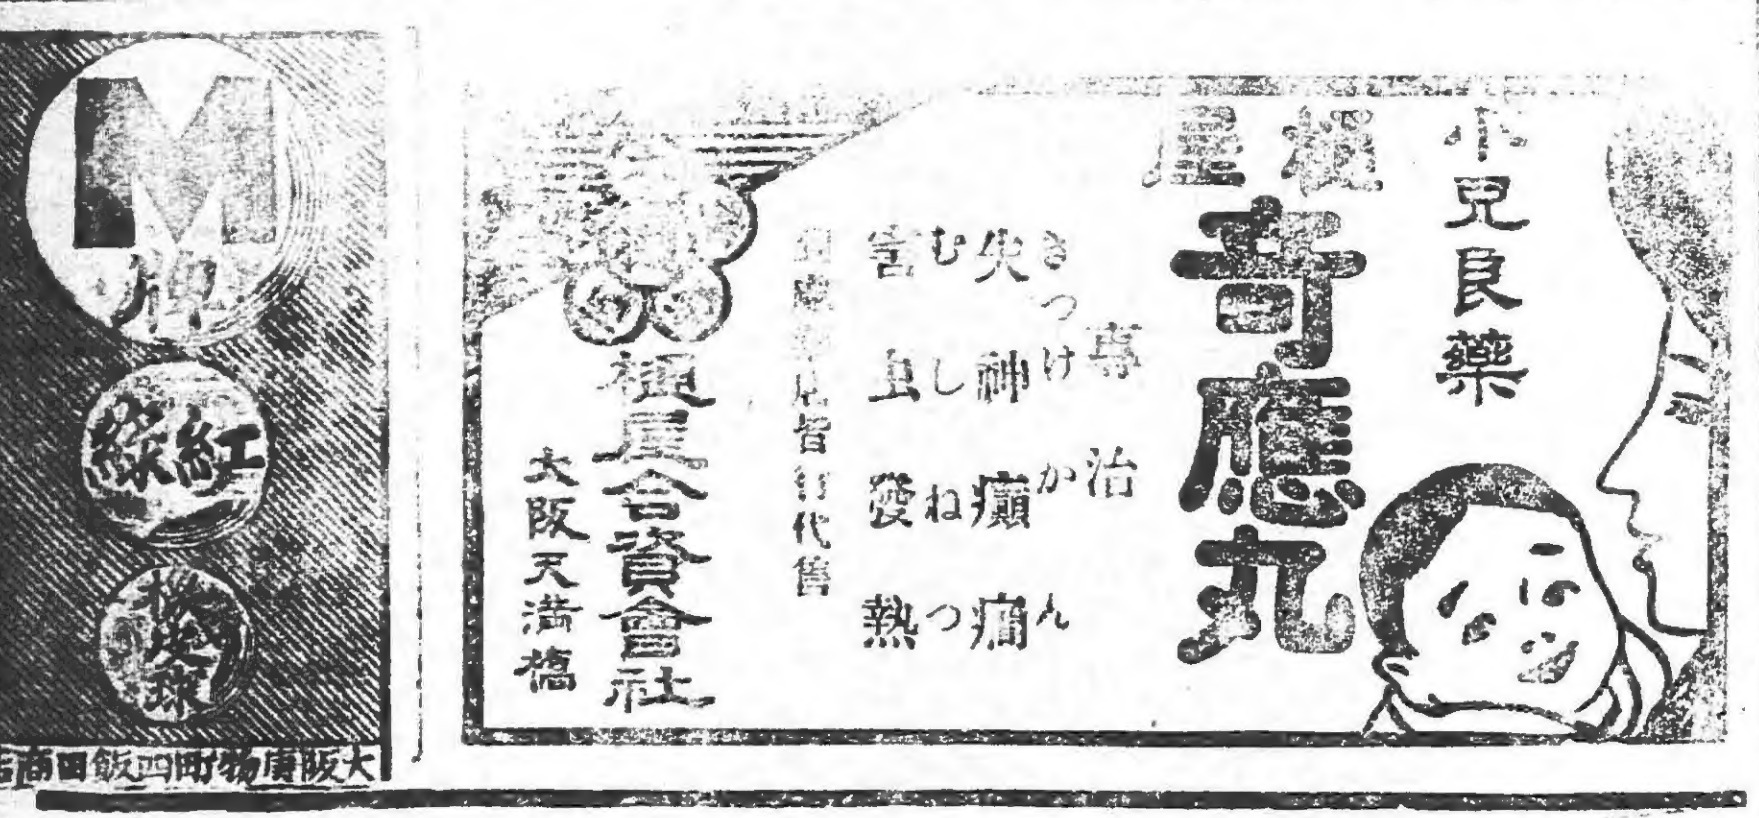 小兒良藥
樋屋
奇應丸
專治
きつけ かん
失神癲癇
むしねつ
害虫發熱
藥店皆有代售
樋屋合資會社
大阪天満橋
M
牌
紅綠
珠
大阪唐物町四飯田商店